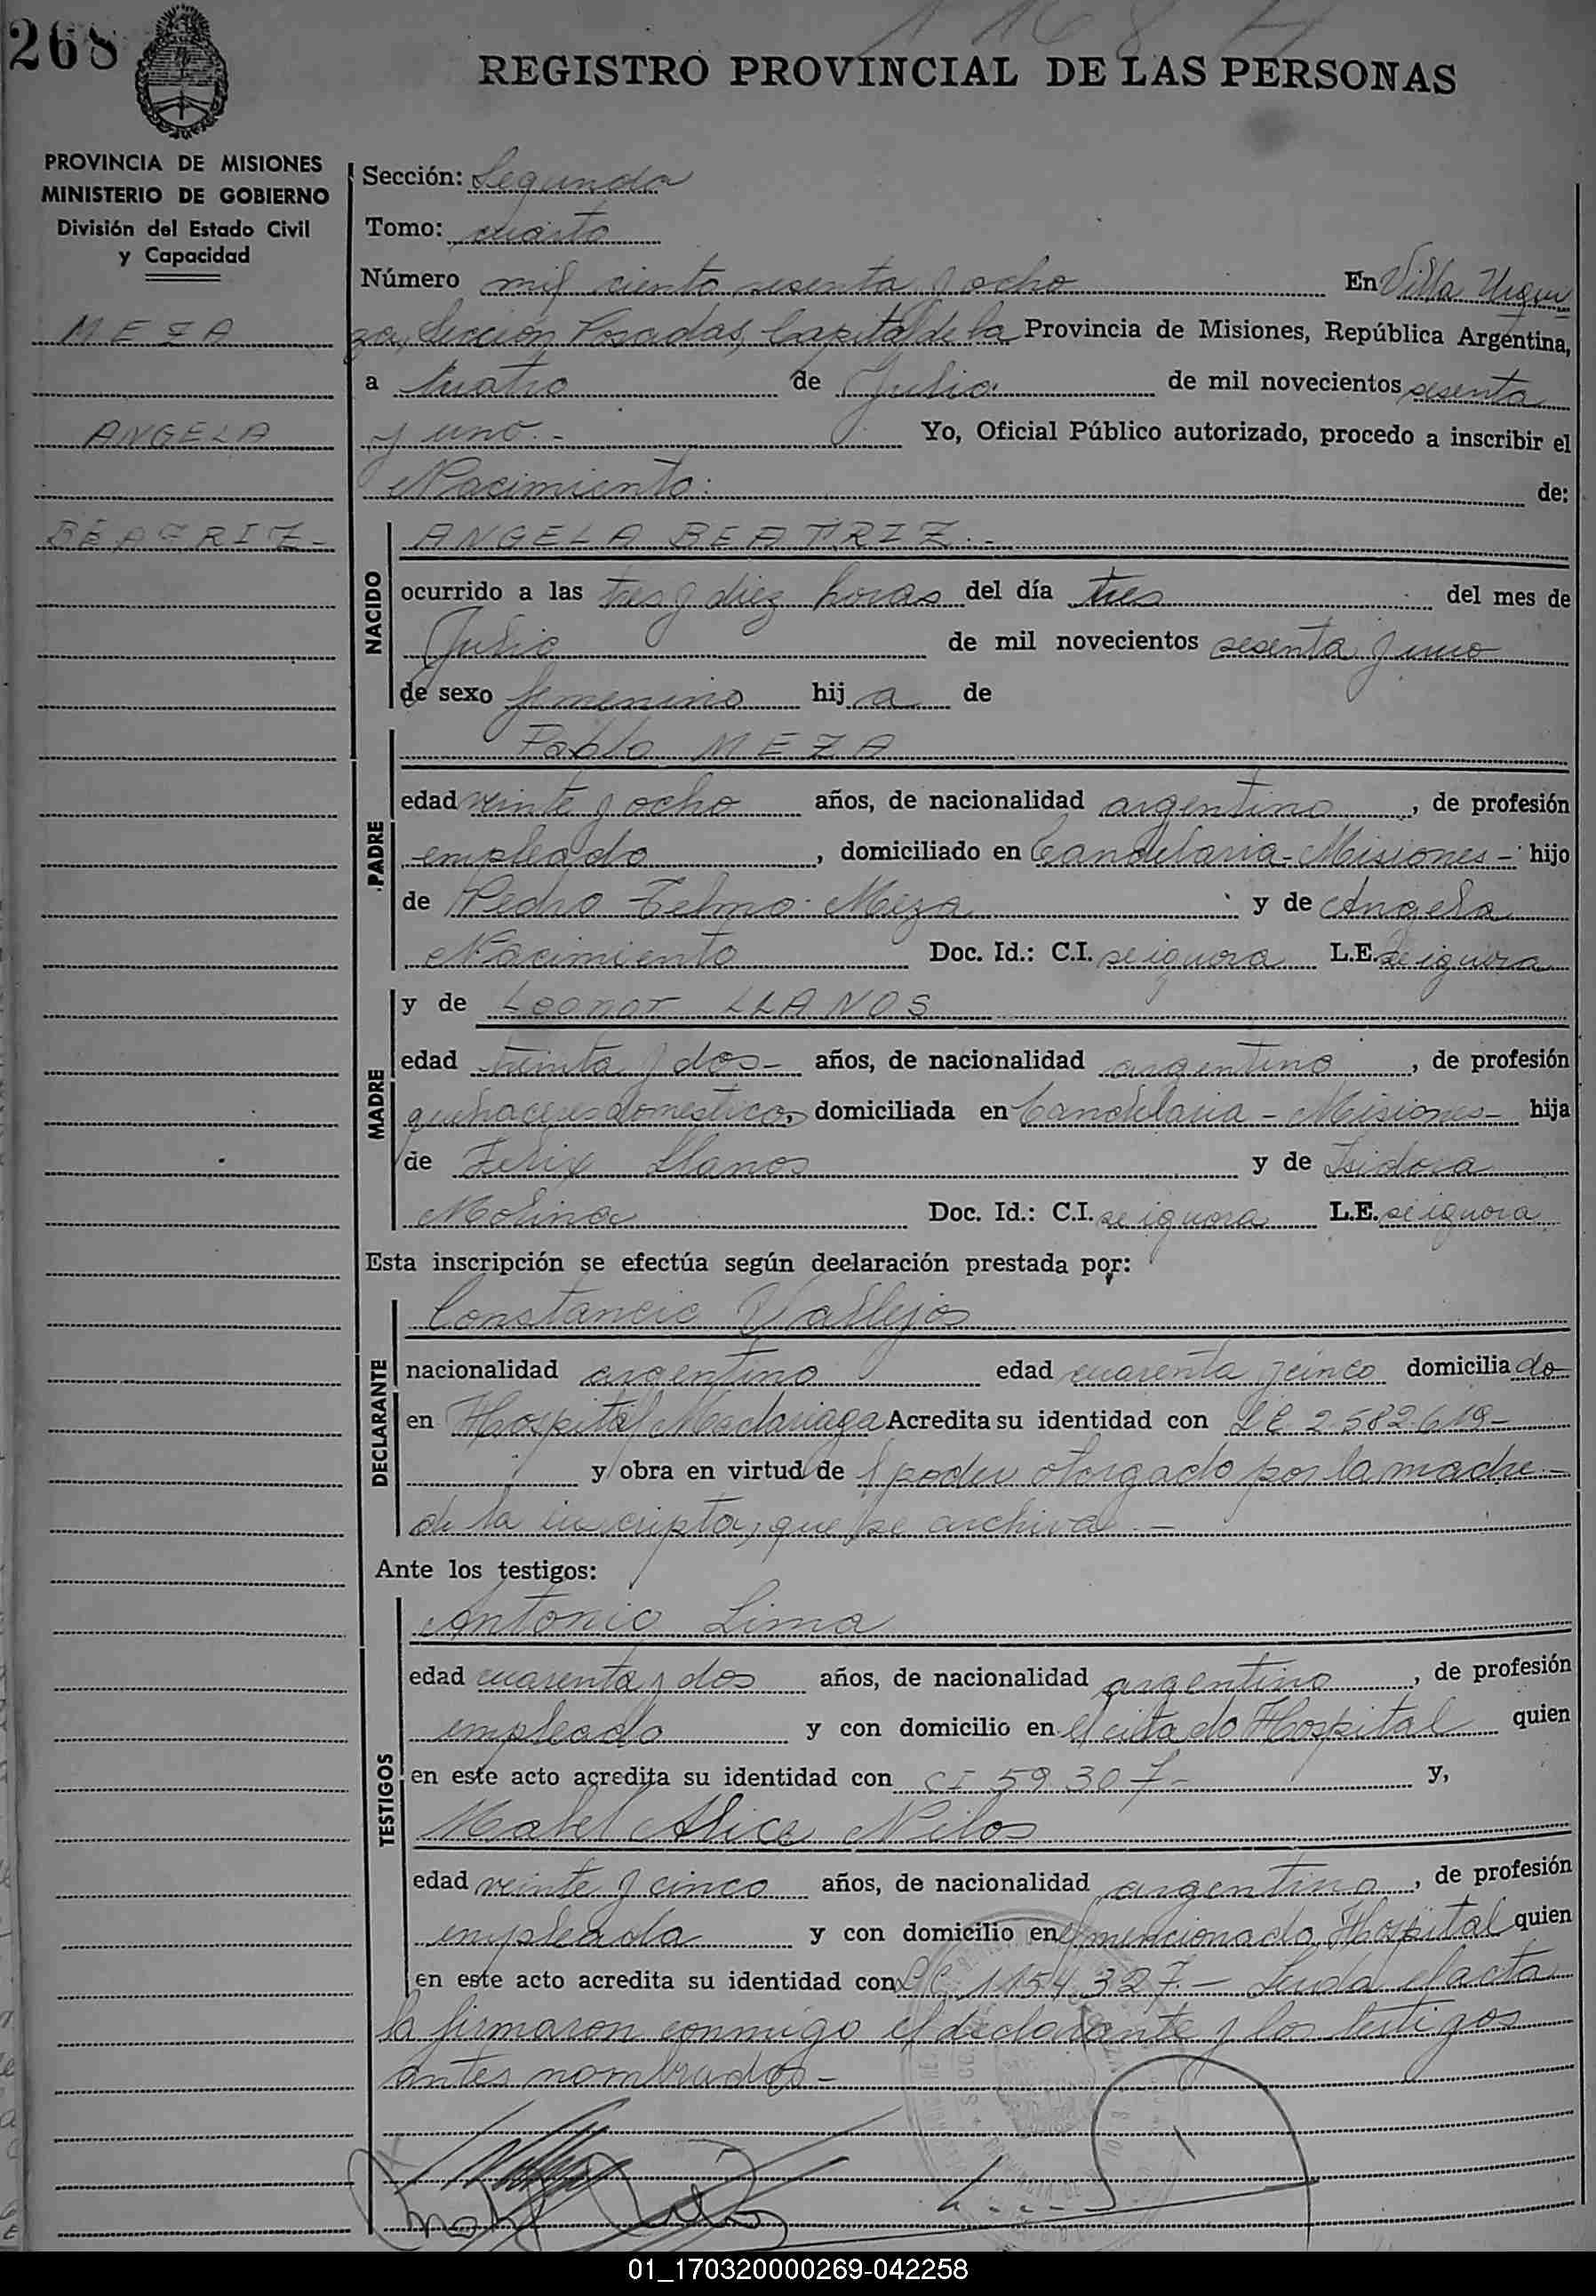 268
REGISTRO PROVINCIAL DE LAS PERSONAS
PROVINCIA DE MISIONES
MINISTERIO DE GOBIERNO
División del Estado Civil
y Capacidad
MEZA
ANGELA
BEATRIZ-
Sección: Segunda
Tomo: cuarto
Número mil ciento sesenta y ocho En Villa Urqui
za, Sección Posadas, Capital de la Provincia de Misiones, República Argentina,
a cuatro de Julio de mil novecientos sesenta
y uno.- Yo, Oficial Público autorizado, procedo a inscribir el
Nacimiento: de:
NACIDO
ANGELA BEATRIZ.-
ocurrido a las tres y diez horas del día tres del mes de
Julio de mil novecientos sesenta y uno
de sexo femenino hij a de
PADRE
Pablo MEZA
edad veinte y ocho años, de nacionalidad argentino, de profesión
empleado, domiciliado en Candelaria-Misiones- hijo
de Pedro Telmo Meza y de Angela
Nacimiento Doc. Id.: C.I. se ignora L.E. se ignora
MADRE
y de Leonor LLANOS
edad treinta y dos- años, de nacionalidad argentina, de profesión
quehaceres domesticos, domiciliada en Candelaria-Misiones- hija
de Felix Llanos y de Isidora
Molina Doc. Id.: C.I. se ignora L.E. se ignora
Esta inscripción se efectúa según declaración prestada por:
DECLARANTE
Constancio Vallejos
nacionalidad argentino edad cuarenta y cinco domicilia do
en Hospital Madariaga Acredita su identidad con L E 2.582.619-
y obra en virtud de el poder otorgado por la madre-
de la inscripta, que se archiva.-
Ante los testigos:
TESTIGOS
Antonio Lima
edad cuarenta y dos años, de nacionalidad argentino, de profesión
empleado y con domicilio en el citado Hospital quien
en este acto acredita su identidad con CI 59.307- y,
Mabel Alice Nilos
edad veinte y cinco años, de nacionalidad argentina, de profesión
empleada y con domicilio en el mencionado Hospital quien
en este acto acredita su identidad con LC 1154.327.- Leida el acta
la firmaron conmigo el declarante y los testigos
antes nombrados-
01_170320000269-042258